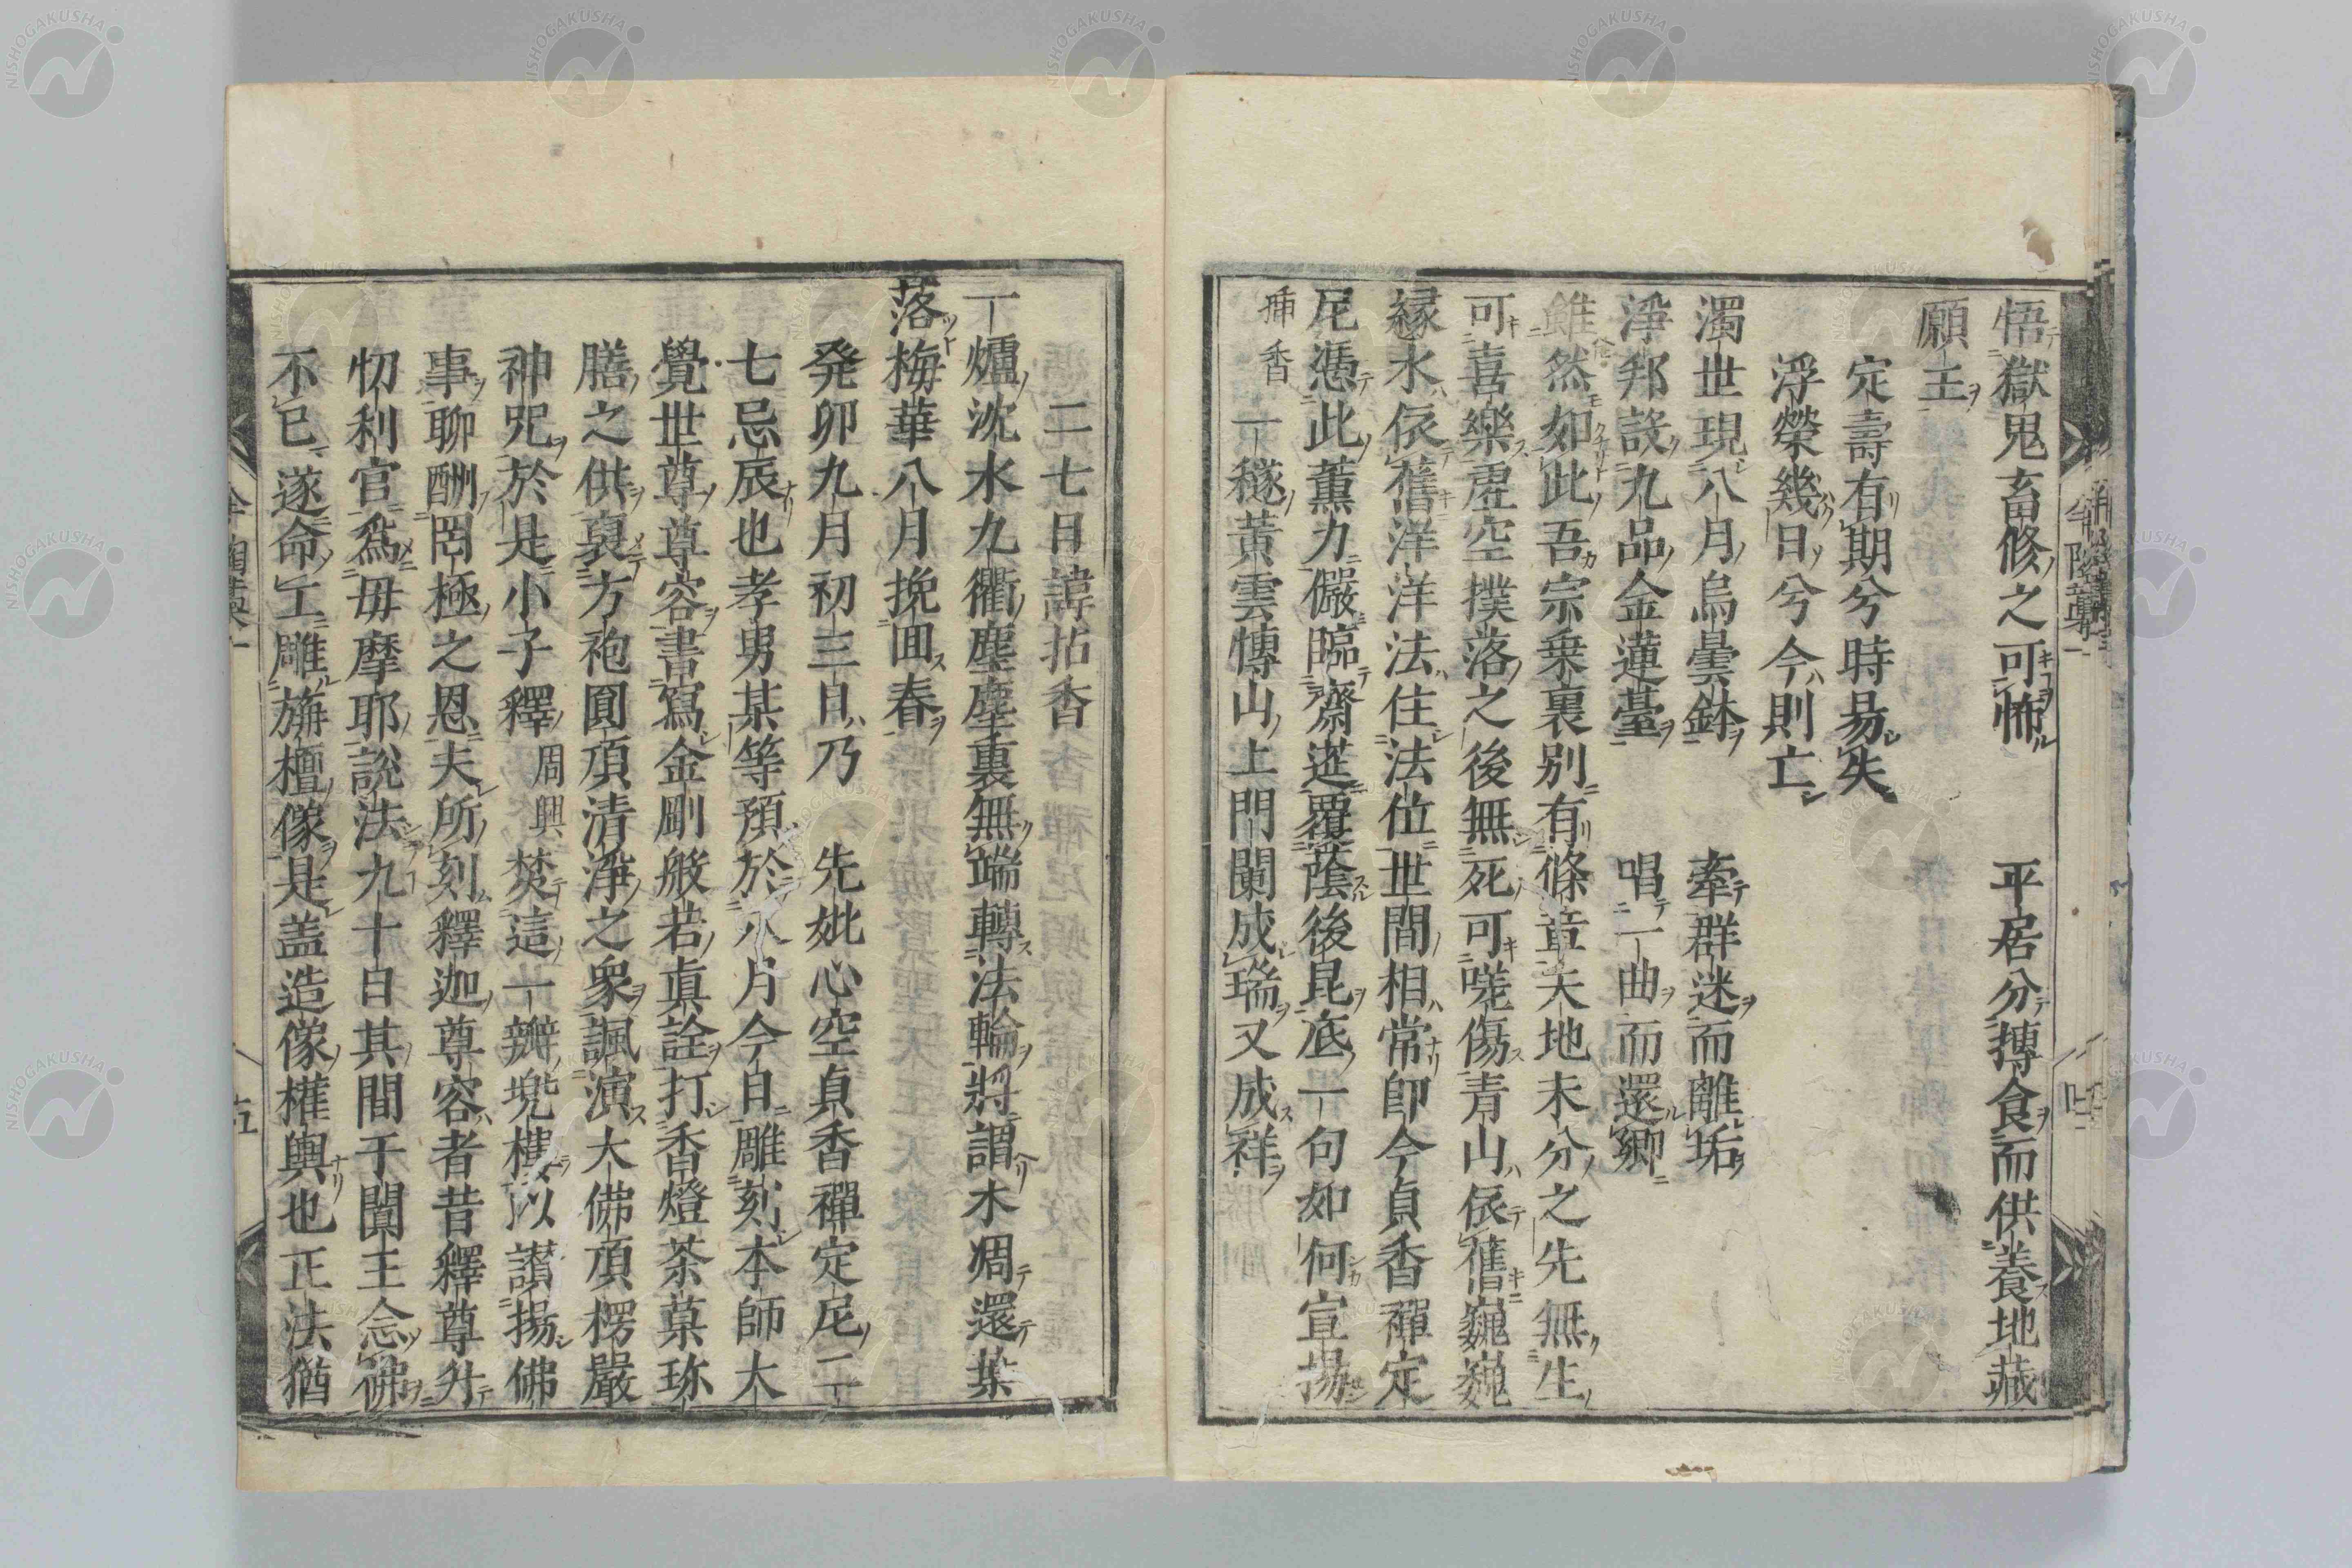 悟獄鬼畜修之可怖　平居分摶食而供養地藏
願王
定壽有期兮時易失
浮榮幾日兮今則亡
濁世現八月烏曇鉢　牽群迷而離垢
淨邦設九品金蓮臺　唱一曲而還鄉
雖然如此吾宗乗裏別有條章天地未分之先無生
可喜樂虛空撲落之後無死可嗟傷青山依舊巍巍
緑水依舊洋洋法住法位世間相常即今貞香禪定
尼憑此薰力儼臨齋莚覆蔭後昆底一句如何宣揚
挿香　一穟黄雲慱山上門闌成瑞又成祥
二七日諱拈香
一爐沈水九衢塵塵裏無端轉法輪將謂木凋還葉
落梅華八月挽囬春
癸卯九月初三日乃　先妣心空貞香禪定尼二
七忌辰也孝男某等預於八月今日雕刻本師大
覺世尊尊容書寫金剛般若眞詮打香燈茶菓珎
膳之供裒方袍圓頂清淨之衆諷演大佛頂楞嚴
神咒於是小子釋周興焚這一瓣兜樓以讃揚佛
事聊酬罔極之恩夫所刻釋迦尊容者昔釋尊升
忉利宮爲毋摩耶說法九十日其間于闐王念佛
不已遂命工雕旃檀像是盖造像權輿也正法猶
五